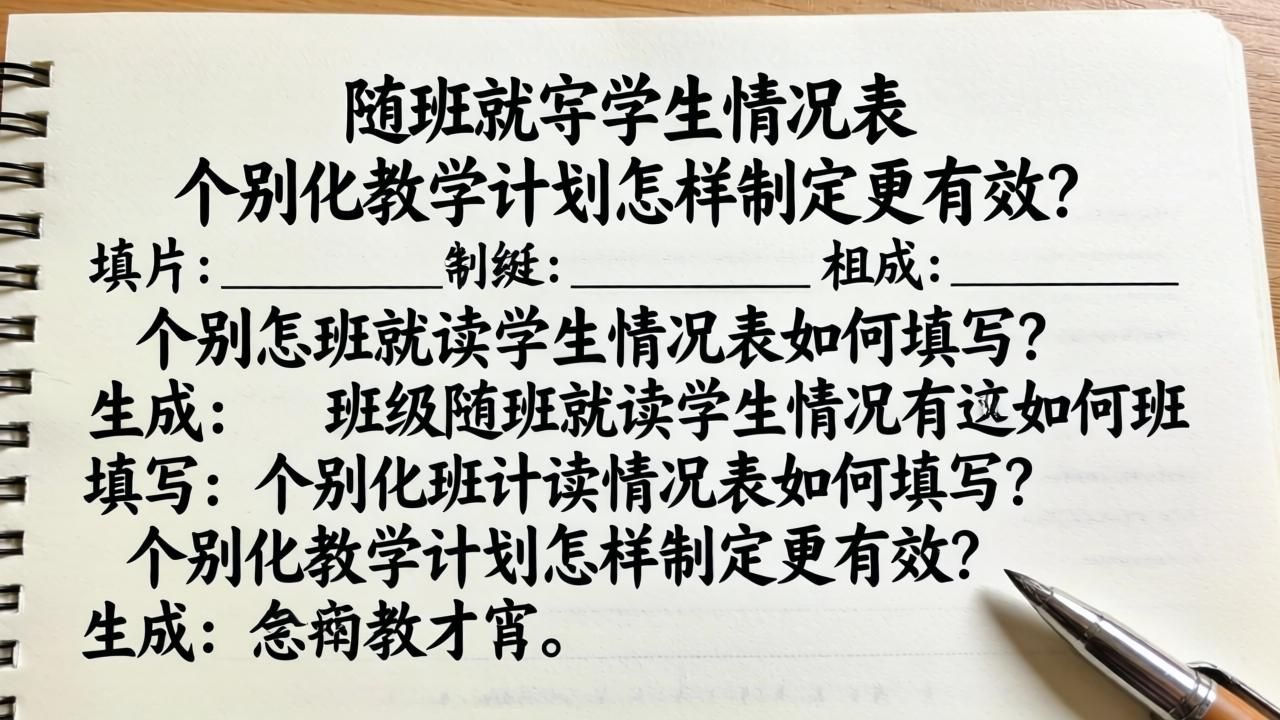 随班就字学生情况表
个别化教学计划怎样制定更有效？
填片：__________制綎：__________ 相成：__________
个别怎班就读学生情况表如何填写？
生成： 班级随班就读学生情况有 如何班
填写：个别化班计读情况表如何填写？
个别化教学计划怎样制定更有效？
生成： 教才宵。